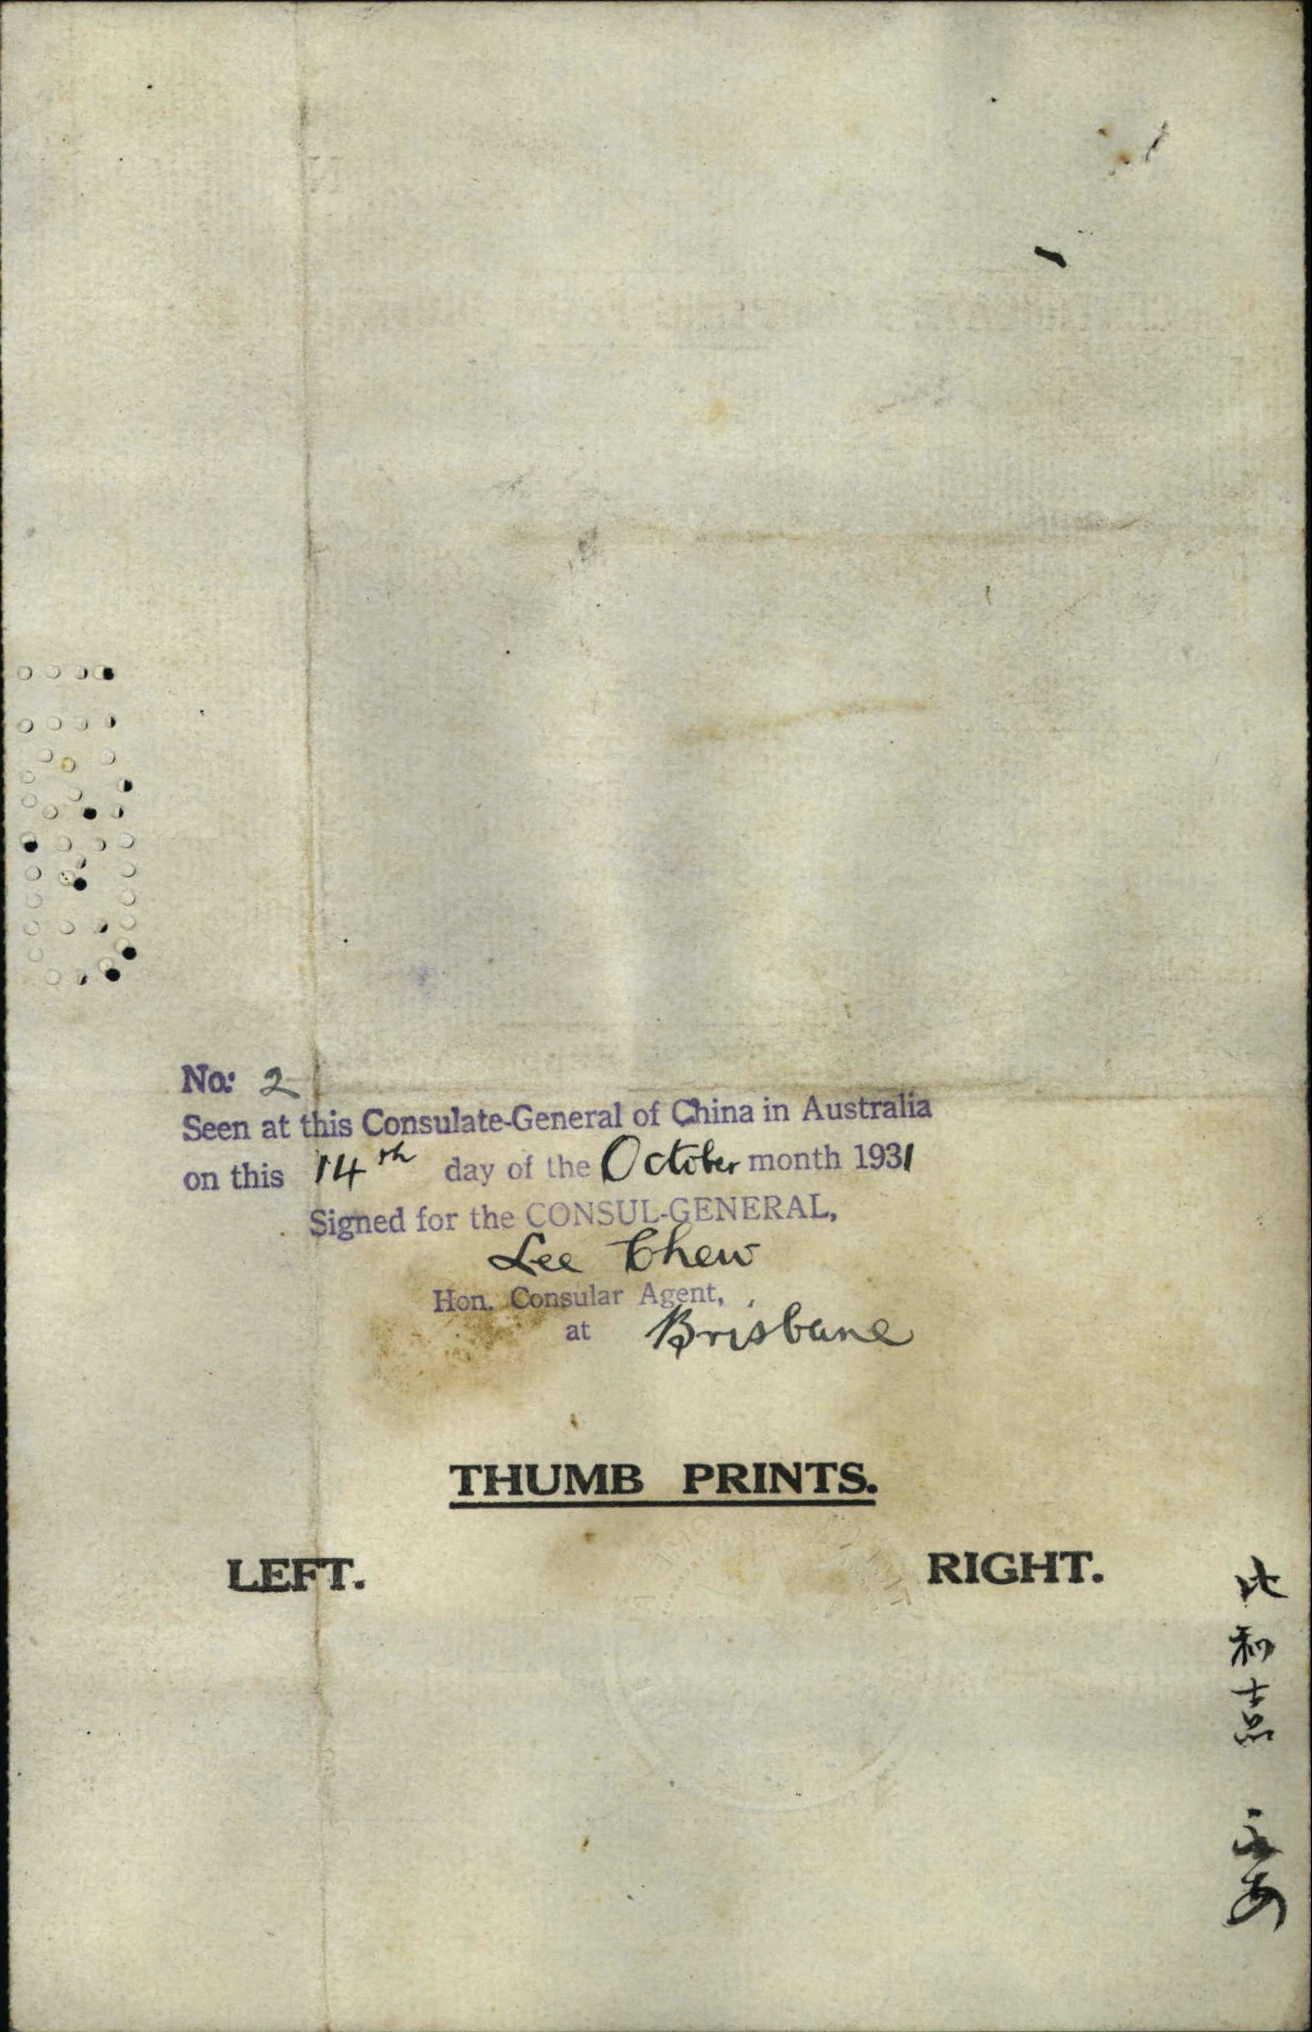 No: 2
Seen at this Consulate-General of China in Australia
on this 14th day of the October month 1931
Signed for the CONSUL-GENERAL,
Lee Chew
Hon. Consular Agent,
at Brisbane
THUMB PRINTS.
LEFT.
RIGHT.